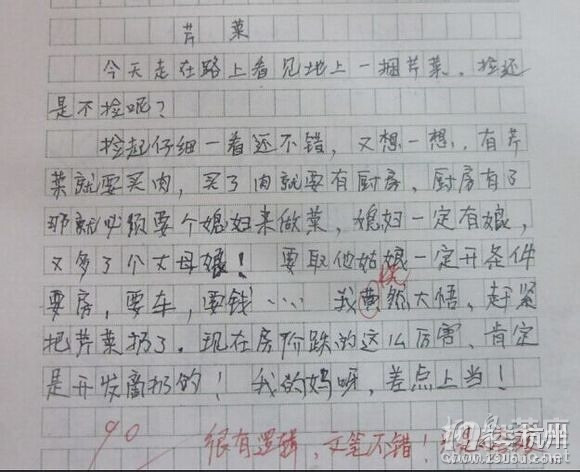 芹菜
今天走在路上看见地上一捆芹菜,捡还
是不捡呢?
捡起仔细一看还不错,又想一想,有芹
菜就要买肉,买了肉就要有厨房,厨房有了
那就必须要个媳妇来做菜,媳妇一定有娘,
又多了个丈母娘!要取他姑娘一定开条件
恍
要房,要车,要钱……我黄然大悟,赶紧
把芹菜扔了.现在房价跌的这么厉害,肯定
是开发商扔的!我的妈呀,差点上当!
90
很有逻辑,文笔不错!
杭州